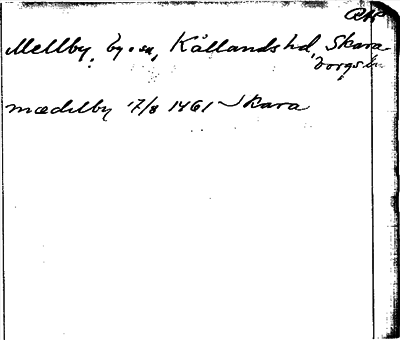 Mellby, by o. sn, Kållands hd, Skara-
borgs l.
mædelby 7/8 1461 Skara